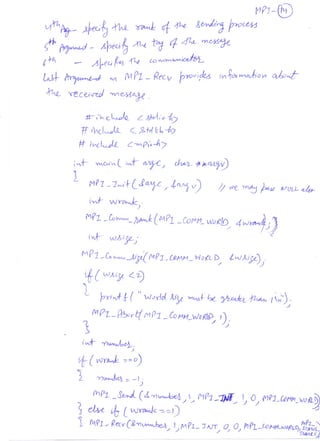 MPI-(M)
4th Arg- specify the rank of the sending process
5th Argument - specify the tag of the message
6th - specifies the communicator.
Last Argument in MPI_Recv provides information about
the received message.
# include <stdio.h>
# include <stdlib.h>
# include <mpi.h>
int main(int argc, char **argv)
{
MPI_Init(&argc, &argv) // we may pass NULL also
int wrank;
MPI_Comm_rank(MPI_COMM_WORLD, &wrank);
int wsize;
MPI_Comm_size(MPI_COMM_WORLD, &wsize);
if (wsize <2)
{ printf("World size must be greater than 1\n");
MPI_Abort(MPI_COMM_WORLD, 1);
}
int number;
if (wrank ==0)
{ number = -1;
MPI_Send (&number, 1, MPI_INT, 1, 0, MPI_COMM_WORLD)
} else if (wrank ==1)
{ MPI_Recv(&number, 1, MPI_INT, 0, 0, MPI_COMM_WORLD,